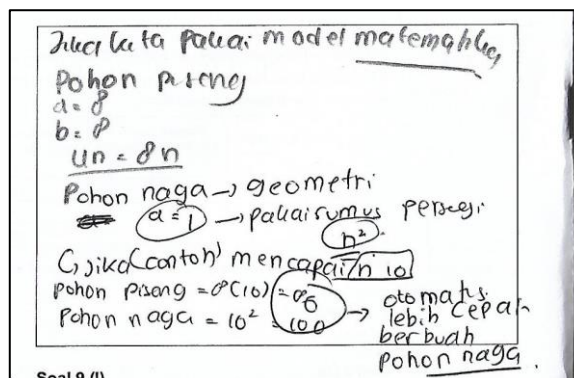 Jika kita pakai model matematika,
Pohon piseng
a = 8
b = 8
Un = 8n
Pohon naga → geometri
a = 1 → pakai rumus persegi
n².
jika (contoh) mencapai n 10
Pohon pisang = 8(10) = 80
Pohon naga = 10² = 100 → otomatis
lebih cepat
berbuah
pohon naga.
Soal 9 (I)